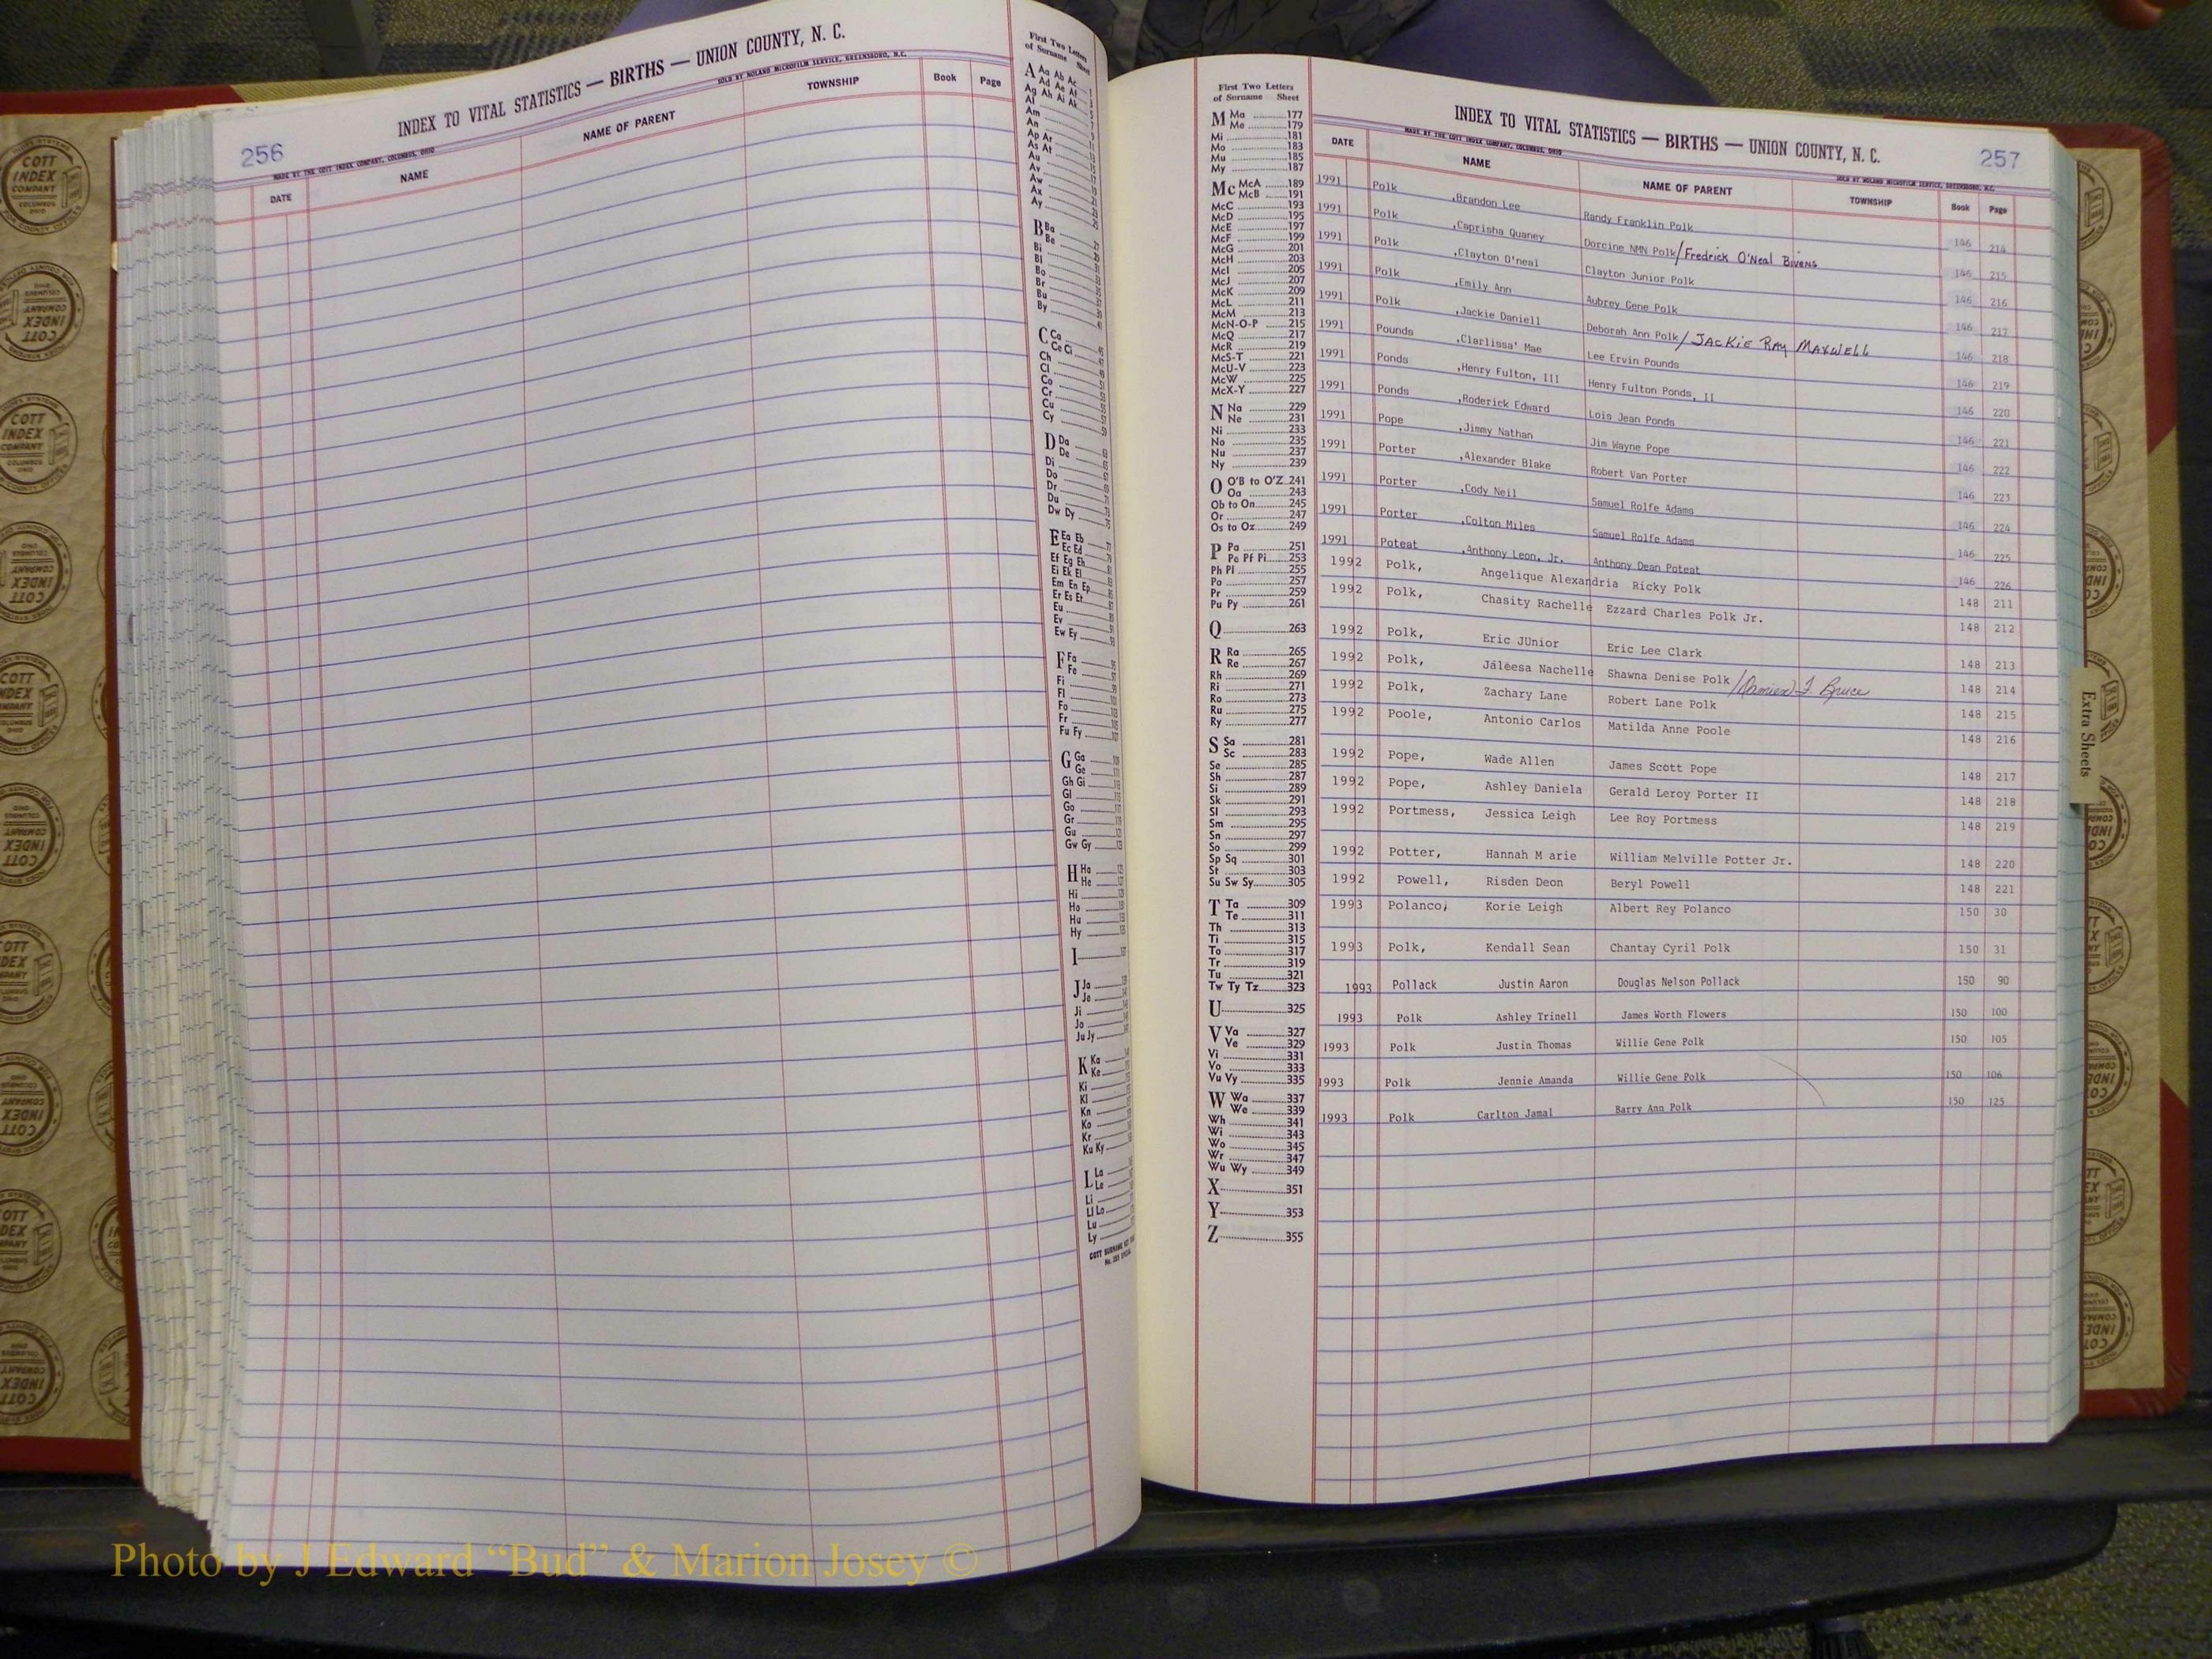 256
INDEX TO VITAL STATISTICS — BIRTHS — UNION COUNTY, N. C.
MADE BY THE COTT INDEX COMPANY, COLUMBUS, OHIO SOLD BY NOLAND MICROFILM SERVICE, GREENSBORO, N.C.
DATE NAME NAME OF PARENT TOWNSHIP Book Page
First Two Letters
of Surname Sheet
A Aa Ab Ac
Ad Ae Af
Ag Ah Ai Ak
Al
Am
An
Ap Ar
As At
Au
Av
Aw
Ax
Ay
B Ba
Be
Bi
Bl
Bo
Br
Bu
By
C Ca
Ce Ci
Ch
Cl
Co
Cr
Cu
Cy
D Da
De
Di
Do
Dr
Du
Dw Dy
E Ea Eb
Ec Ed
Ef Eg Eh
Ei Ek El
Em En Ep
Er Es Et
Eu
Ev
Ew Ey
F Fa
Fe
Fi
Fl
Fo
Fr
Fu Fy
G Ga
Ge
Gh Gi
Gl
Go
Gr
Gu
Gw Gy
H Ha
He
Hi
Ho
Hu
Hy
I
J Ja
Je
Ji
Jo
Ju Jy
K Ka
Ke
Ki
Kl
Kn
Ko
Kr
Ku Ky
L La
Le
Li
Ll Lo
Lu
Ly
First Two Letters
of Surname Sheet
M Ma 177
Me 179
Mi 181
Mo 183
Mu 185
My 187
Mc McA 189
McB 191
McC 193
McD 195
McE 197
McF 199
McG 201
McH 203
McI 205
McJ 207
McK 209
McL 211
McM 213
McN-O-P 215
McQ 217
McR 219
McS-T 221
McU-V 223
McW 225
McX-Y 227
N Na 229
Ne 231
Ni 233
No 235
Nu 237
Ny 239
O O'B to O'Z 241
Oa 243
Ob to On 245
Or 247
Os to Oz 249
P Pa 251
Pe Pf Pi 253
Ph Pl 255
Po 257
Pr 259
Pu Py 261
Q 263
R Ra 265
Re 267
Rh 269
Ri 271
Ro 273
Ru 275
Ry 277
S Sa 281
Sc 283
Se 285
Sh 287
Si 289
Sk 291
Sl 293
Sm 295
Sn 297
So 299
Sp Sq 301
St 303
Su Sw Sy 305
T Ta 309
Te 311
Th 313
Ti 315
To 317
Tr 319
Tu 321
Tw Ty Tz 323
U 325
V Va 327
Ve 329
Vi 331
Vo 333
Vu Vy 335
W Wa 337
We 339
Wh 341
Wi 343
Wo 345
Wr 347
Wu Wy 349
X 351
Y 353
Z 355
INDEX TO VITAL STATISTICS — BIRTHS — UNION COUNTY, N. C. 257
MADE BY THE COTT INDEX COMPANY, COLUMBUS, OHIO SOLD BY NOLAND MICROFILM SERVICE, GREENSBORO, N.C.
DATE NAME NAME OF PARENT TOWNSHIP Book Page
1991 Polk ,Brandon Lee Randy Franklin Polk 146 214
1991 Polk ,Caprisha Quaney Dorcine NMN Polk/Fredrick O'Neal Bivens 146 215
1991 Polk ,Clayton O'neal Clayton Junior Polk 146 216
1991 Polk ,Emily Ann Aubrey Gene Polk 146 217
1991 Polk ,Jackie Daniell Deborah Ann Polk/JACKIE RAY MAXWELL 146 218
1991 Pounds ,Clarlissa' Mae Lee Ervin Pounds 146 219
1991 Ponds ,Henry Fulton, III Henry Fulton Ponds, II 146 220
1991 Ponds ,Roderick Edward Lois Jean Ponds 146 221
1991 Pope ,Jimmy Nathan Jim Wayne Pope 146 222
1991 Porter ,Alexander Blake Robert Van Porter 146 223
1991 Porter ,Cody Neil Samuel Rolfe Adams 146 224
1991 Porter ,Colton Miles Samuel Rolfe Adams 146 225
1991 Poteat ,Anthony Leon, Jr. Anthony Dean Poteat 146 226
1992 Polk, Angelique Alexandria Ricky Polk 148 211
1992 Polk, Chasity Rachelle Ezzard Charles Polk Jr. 148 212
1992 Polk, Eric JUnior Eric Lee Clark 148 213
1992 Polk, Jaleesa Nachelle Shawna Denise Polk/Damien T. Bruce 148 214
1992 Polk, Zachary Lane Robert Lane Polk 148 215
1992 Poole, Antonio Carlos Matilda Anne Poole 148 216
1992 Pope, Wade Allen James Scott Pope 148 217
1992 Pope, Ashley Daniela Gerald Leroy Porter II 148 218
1992 Portmess, Jessica Leigh Lee Roy Portmess 148 219
1992 Potter, Hannah M arie William Melville Potter Jr. 148 220
1992 Powell, Risden Deon Beryl Powell 148 221
1993 Polanco, Korie Leigh Albert Rey Polanco 150 30
1993 Polk, Kendall Sean Chantay Cyril Polk 150 31
1993 Pollack Justin Aaron Douglas Nelson Pollack 150 90
1993 Polk Ashley Trinell James Worth Flowers 150 100
1993 Polk Justin Thomas Willie Gene Polk 150 105
1993 Polk Jennie Amanda Willie Gene Polk 150 106
1993 Polk Carlton Jamal Barry Ann Polk 150 125
Extra Sheets
COTT
INDEX
COMPANY
COLUMBUS
OHIO
Photo by J Edward “Bud” & Marion Josey ©